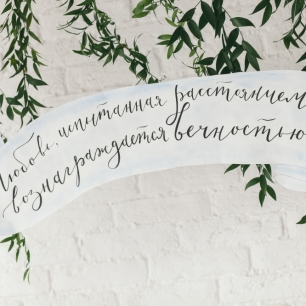 Любовь, испытанная расстоянием,
вознаграждается вечностью